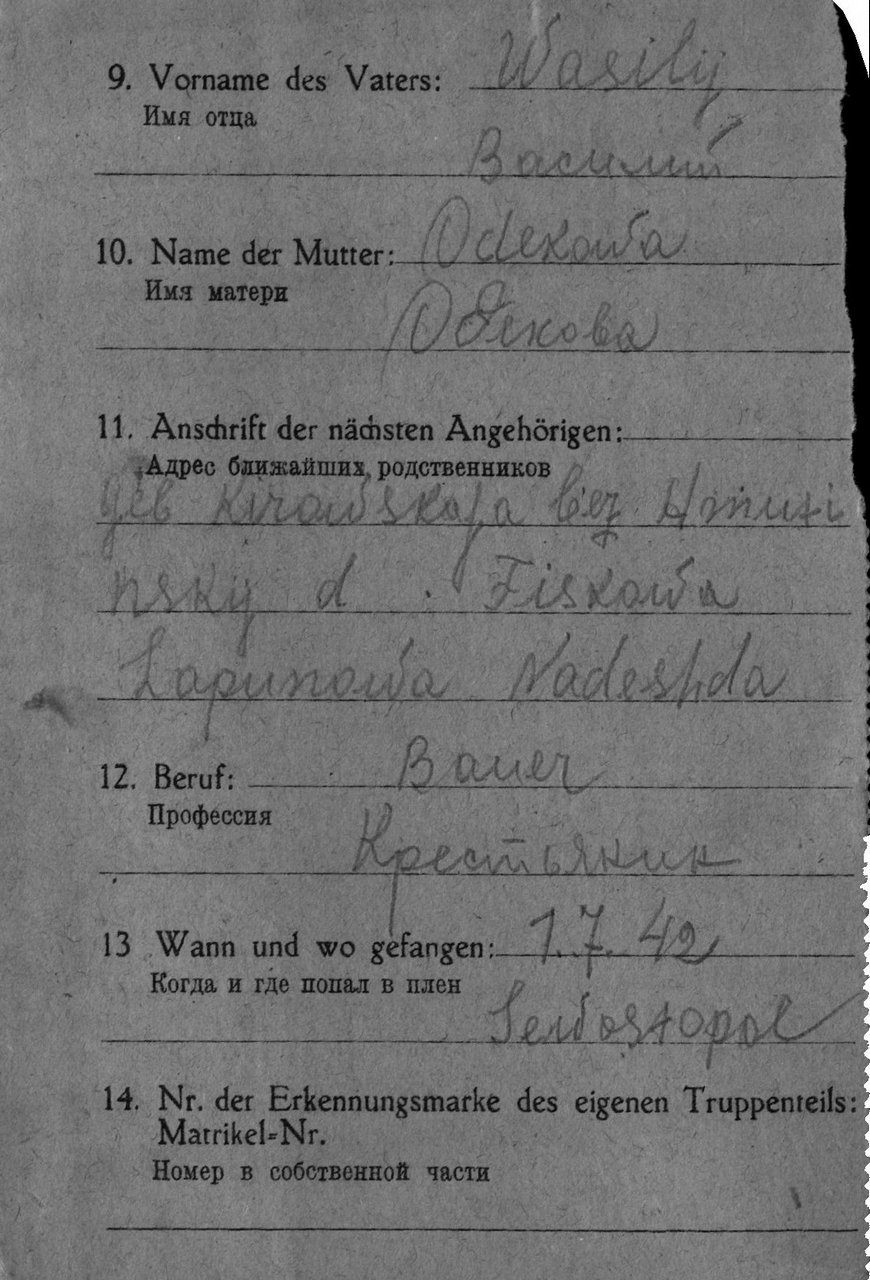 9. Vorname des Vaters: Wasilij
Имя отца
Василий
10. Name der Mutter: Odekowa
Имя матери
Одекова
11. Anschrift der nächsten Angehörigen:
Адрес ближайших родственников
geb Kirowskaja bez
nsky d. Fiskowa
Lapunowa Nadeshda
12. Beruf: Bauer
Профессия
Крестьянин
13 Wann und wo gefangen: 1.7.42
Когда и где попал в плен
Sewostopol
14. Nr. der Erkennungsmarke des eigenen Truppenteils:
Matrikel-Nr.
Номер в собственной части